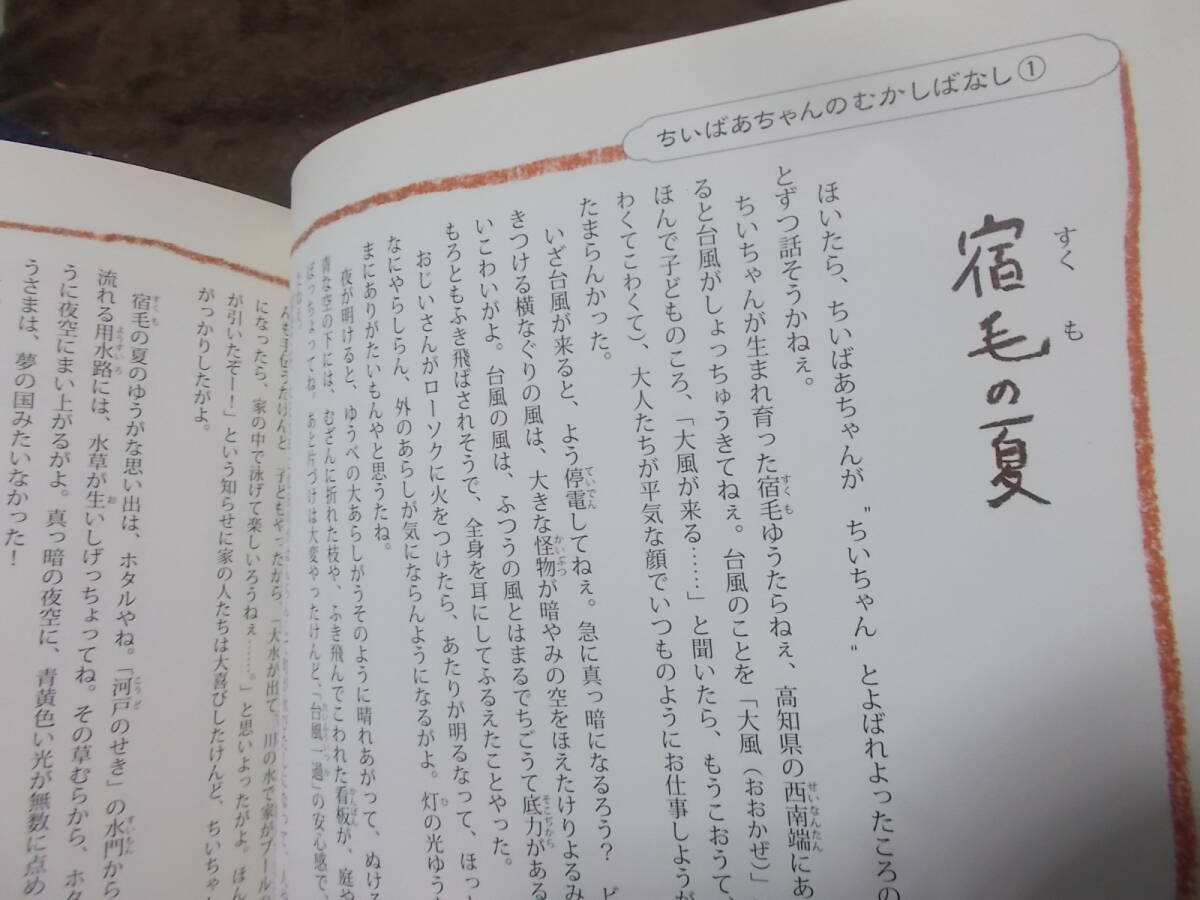 ちいばあちゃんのむかしばなし①
宿毛の夏
すくも
ほいたら、ちいばあちゃんが〝ちいちゃん〟とよばれよったころの
とずつ話そうかねぇ。
ちいちゃんが生まれ育った宿毛ゆうたらねぇ、高知県の西南端にあ
ると台風がしょっちゅうきてねぇ。台風のことを「大風（おおかぜ）」
ほんで子どものころ、「大風が来る……」と聞いたら、もうこおうて、
わくてこわくて）、大人たちが平気な顔でいつものようにお仕事しようが
たまらんかった。
いざ台風が来ると、よう停電してねぇ。急に真っ暗になるろう？　ビ
きつける横なぐりの風は、大きな怪物が暗やみの空をほえたけりよるみ
いこわいがよ。台風の風は、ふつうの風とはまるでちごうて底力がある
もろともふき飛ばされそうで、全身を耳にしてふるえたことやった。
おじいさんがローソクに火をつけたら、あたりが明るなって、ほっ
なにやらしらん、外のあらしが気にならんようになるがよ。灯の光ゆう
まにありがたいもんやと思うたね。
夜が明けると、ゆうべの大あらしがうそのように晴れあがって、ぬける
青な空の下には、むざんに折れた枝や、ふき飛んでこわれた看板が、庭や
ぱっちょってね。あと片づけは大変やったけんど、「台風一過」の安心感で、
になったら、家の中で泳げて楽しいろうねぇ……。」と思いよったがよ。ほん
が引いたぞー！」という知らせに家の人たちは大喜びしたけんど、ちいちゃ
がっかりしたがよ。
宿毛の夏のゆうがな思い出は、ホタルやね。「河戸のせき」の水門から
流れる用水路には、水草が生いしげっちょってね。その草むらから、ホタ
うに夜空にまい上がるがよ。真っ暗の夜空に、青黄色い光が無数に点め
うさまは、夢の国みたいなかった！